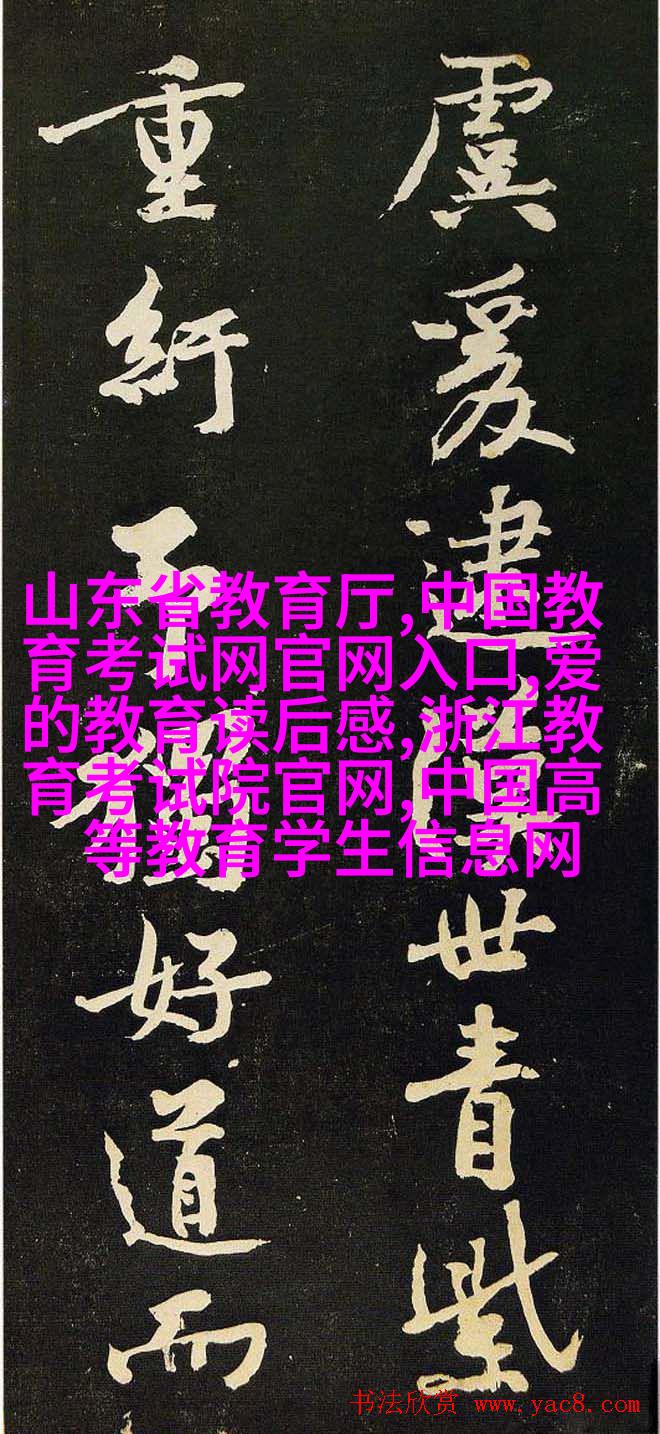 虞爰逮漢世青紫
重紆予獨好道而
山东省教育厅,中国教
育考试网官网入口,爱
的教育读后感,浙江教
育考试院官网,中国高
等教育学生信息网
书法欣赏 www.yac8.com